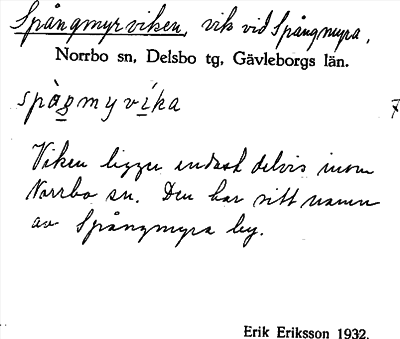 Spångmyrviken, vik vid Spångmyra,
Norrbo sn, Delsbo tg, Gävleborgs län.
spågmyvíka 7
Viken ligger endast delvis inom
Norrbo sn. Den har sitt namn
av Spångmyra by.
Erik Eriksson 1932.